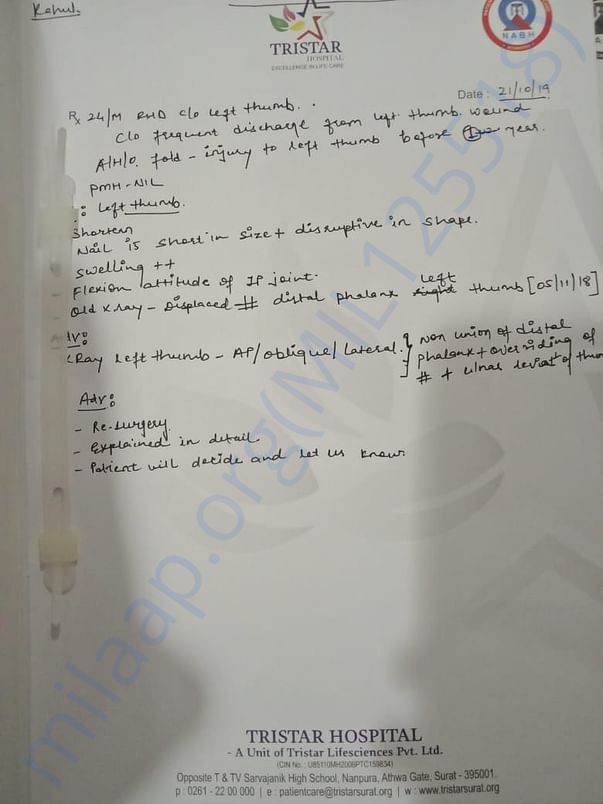 Rahul.
TRISTAR
HOSPITAL
EXCELLENCE IN LIFE CARE
NABH
Date : 21/10/19
Rx 24/M RHD c/o left thumb.
c/o frequent discharge from left thumb. wound
A/H/O. fold - injury to left thumb before 1 year.
PMH - NIL
: Left thumb.
Shorten
Nail is short in size + disruptive in shape.
Swelling ++
Flexion attitude of IP joint.
Old X ray - Displaced # distal phalanx left thumb [05/11/18]
IV:
XRay left thumb - AP/oblique/lateral. } non union of distal
phalanx + over riding of
# + ulnar deviat of thum
Adv:
- Re-surgery.
- Explained in detail.
- Patient will decide and let us know.
milaap.org(MIL125518)
TRISTAR HOSPITAL
- A Unit of Tristar Lifesciences Pvt. Ltd.
(CIN No. : U85110MH2006PTC159834)
Opposite T & TV Sarvajanik High School, Nanpura, Athwa Gate, Surat - 395001.
p : 0261 - 22 00 000 | e : patientcare@tristarsurat.org | w : www.tristarsurat.org